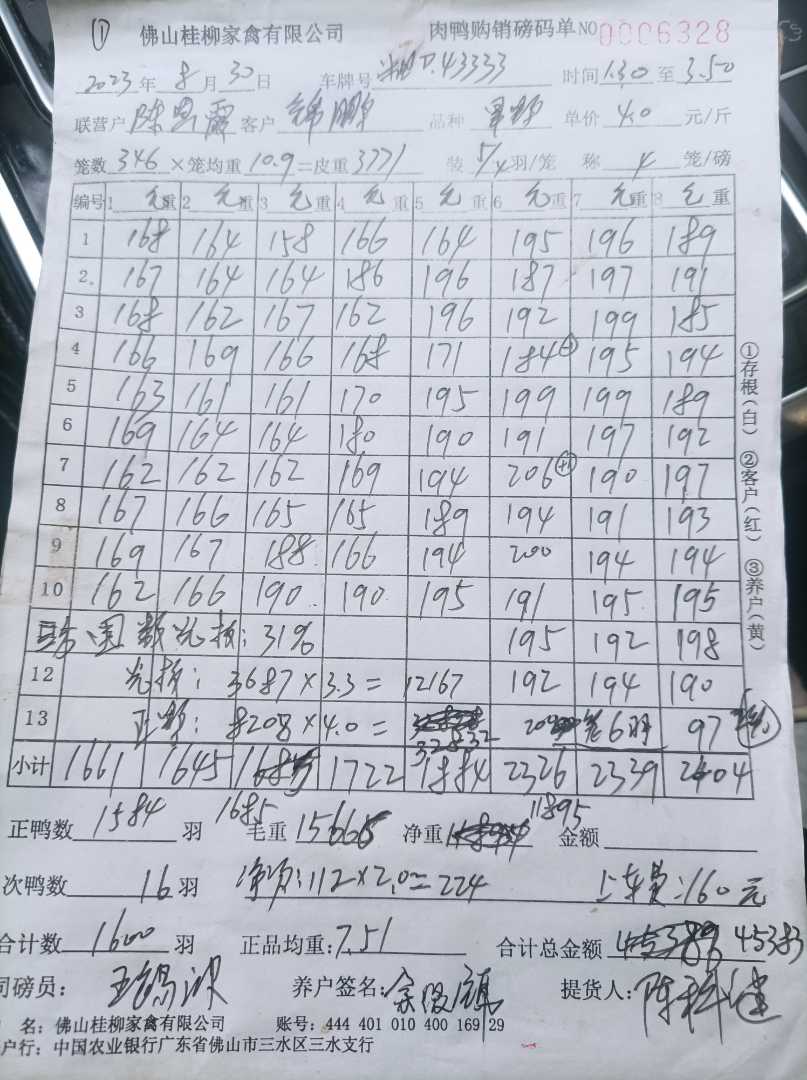 ① 佛山桂柳家禽有限公司 肉鸭购销磅码单 NO 0006328
2023年8月30日 车牌号 D.43333 时间 1:30 至 3:50
联营户 陈 霞 客户 锦鹏 品种 单价 4.0 元/斤
笼数 346 ×笼均重 10.9 =皮重 3771 装 5/4 羽/笼 称 4 笼/磅
编号 1 毛重 2 毛重 3 毛重 4 毛重 5 毛重 6 毛重 7 毛重 8 毛重
1 168 164 158 166 164 195 196 189
2 167 164 164 186 196 187 197 191
3 168 162 167 162 196 192 199 185
4 166 169 166 168 171 184 195 194
5 163 161 161 170 195 199 199 189
6 169 164 164 180 190 191 197 192
7 162 162 162 169 194 206 +1 190 197
8 167 166 165 165 189 194 191 193
9 169 167 188 166 194 200 194 194
10 162 166 190 190 195 191 195 195
31% 195 192 198
12 3687×3.3= 12167 192 194 190
13 正 8208×4.0= 32832 笼6羽 97
小计 1661 1645 1685 1722 1884 2326 2339 2404
正鸭数 1584 羽 1685 毛重 15666 净重 11895 金额
次鸭数 16 羽 112×2.0=224 上车费:160元
合计数 1600 羽 正品均重: 7.51 合计总金额 45383
司磅员: 养户签名: 提货人:
名: 佛山桂柳家禽有限公司 账号: 444 401 010 400 169 29
户行: 中国农业银行广东省佛山市三水区三水支行
①存根(白) ②客户(红) ③养户(黄)